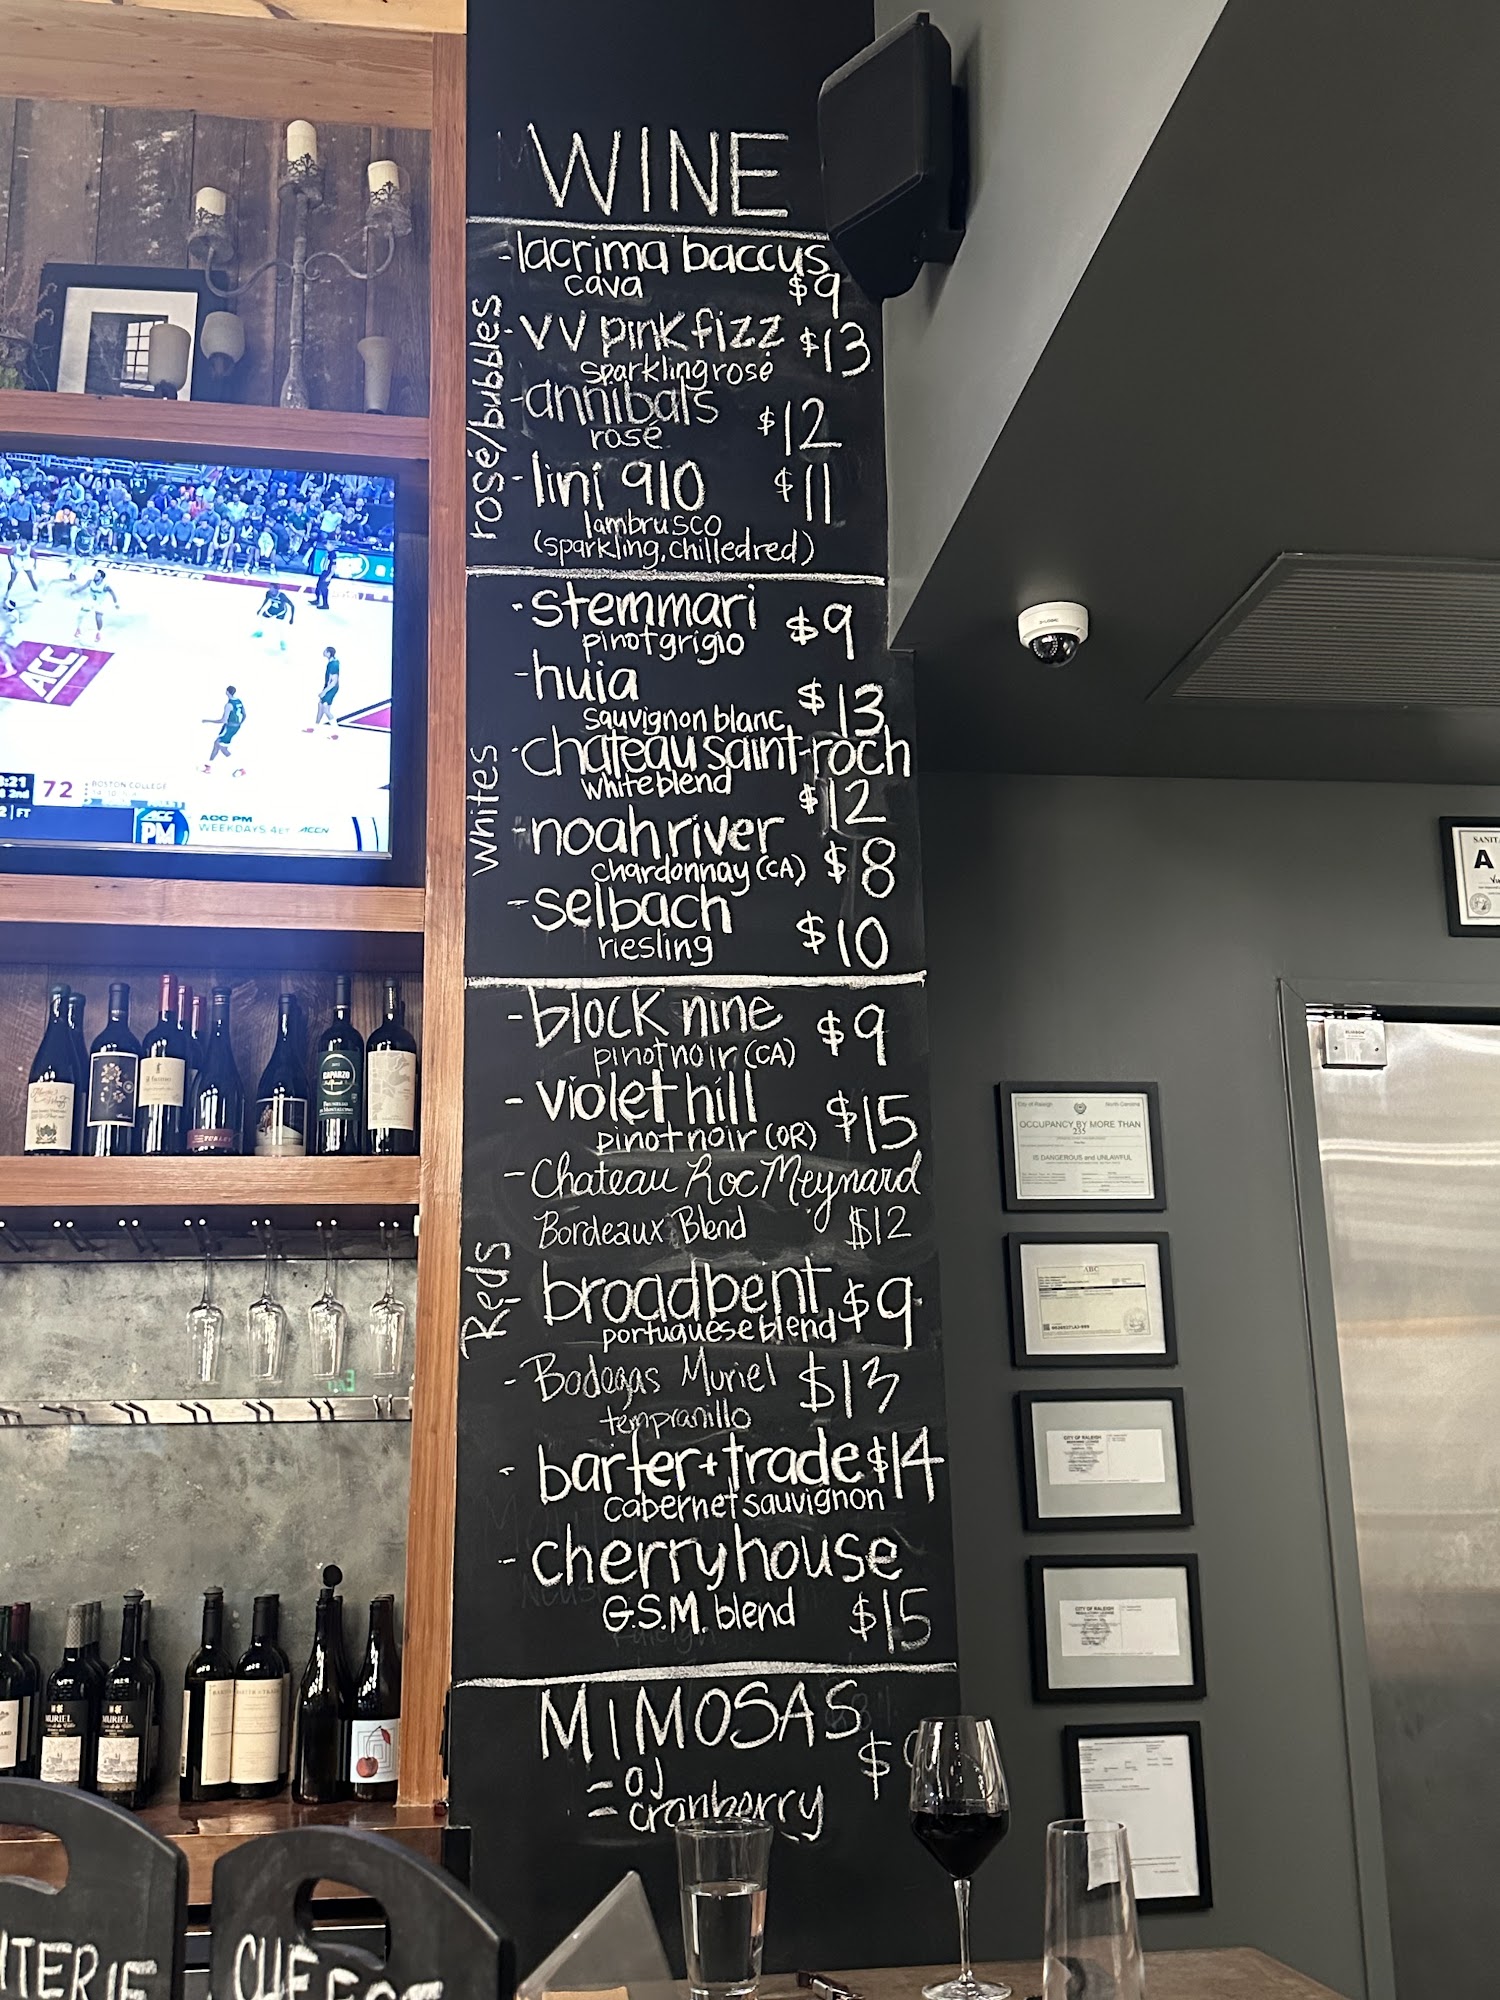 WINE
rosé/bubbles
- lacrima baccus
cava $9
- VV pink fizz $13
sparkling rosé
- annibals $12
rosé
- lini 910 $11
lambrusco
(sparkling, chilled red)
whites
- stemmari $9
pinot grigio
- huia $13
sauvignon blanc
- chateau saint-roch
white blend $12
- noah river $8
chardonnay (CA)
- selbach $10
riesling
Reds
- block nine $9
pinot noir (CA)
- violet hill $15
pinot noir (OR)
- Chateau Roc Meynard
Bordeaux Blend $12
broadbent $9
portuguese blend
- Bodegas Muriel $13
tempranillo
- barter + trade $14
cabernet sauvignon
- cherry house
G.S.M. blend $15
MIMOSAS
$
- OJ
- cranberry
ACC
:21
2nd
72
BOSTON COLLEGE
2 | FT
ACC
PM
ACC PM
WEEKDAYS 4ET ACCN
CAPARZO
MURIEL
MURIEL
SANIT
A
City of Raleigh North Carolina
OCCUPANCY BY MORE THAN
235
IS DANGEROUS and UNLAWFUL
ABC
CITY OF RALEIGH
CITY OF RALEIGH
TERIE
CHEESE